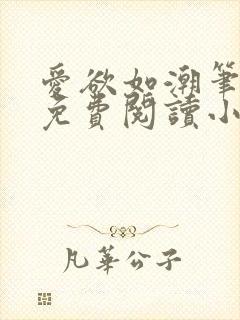 愛欲如潮筆
免費閱讀小
凡華公子